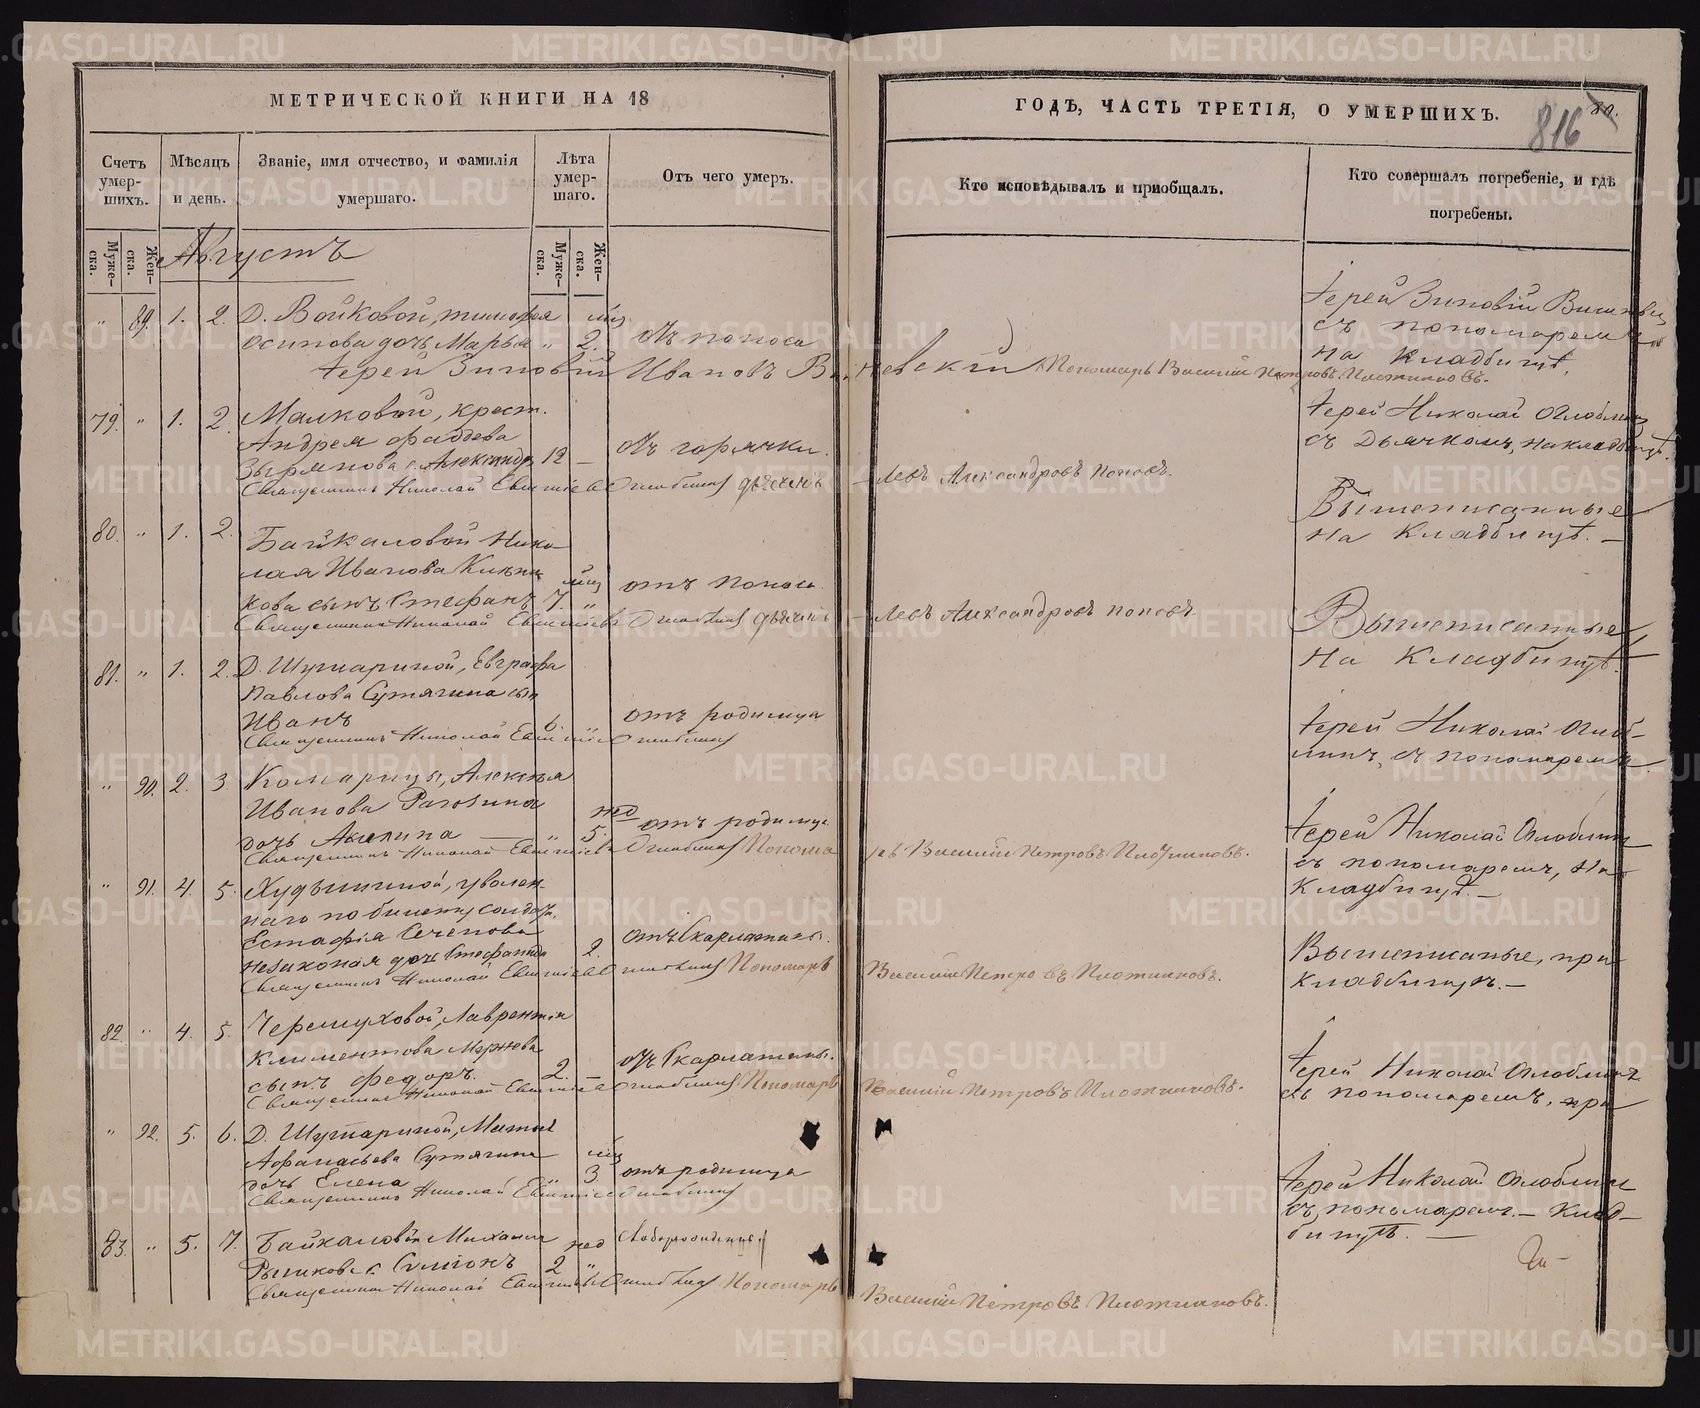 МЕТРИЧЕСКОЙ КНИГИ НА 18
Счетъ умер-шихъ.
Мѣсяцъ и день.
Званіе, имя отчество, и фамилія умершаго.
Лѣта умер-шаго.
Отъ чего умеръ.
Муже-ска.
Жен-ска.
Муже-ска.
Жен-ска.
Августъ
" 89. 1. 2. Д. Войковой, Тимофея мѣс.
Осипова дочь Марья " 2. отъ поноса
Іерей Зиновій Ивановъ
79. " 1. 2. Малковой, крест.
Андрея Фаддѣева
Зырянова с. Александръ 12 — отъ горячки.
Священникъ Николай Оглоблинъ дьячекъ
80. " 1. 2. Байкаловой Нико-
лая Иванова мѣс
кова сынъ Стефанъ 7. " отъ поноса
Священникъ Николай Оглоблинъ дьячекъ
81. " 1. 2. Д. Шутариной, Евграфа
Павлова Сутягина сын
Иванъ 6. " отъ родимца
Священникъ Николай Оглоблинъ
" 90. 2. 3. Комарицы, Алексѣя
Иванова нед
дочь Акилина — " 5. отъ родимца
Священникъ Николай Оглоблинъ Понома
" 91. 4. 5. уволен-
наго по билету солдата
Естафія
незаконая дочь 2. отъ скарлатины.
Священникъ Николай Оглоблинъ Пономарь
82. " 4. 5. Черемуховой, Лаврентія
Климентова
сынъ Федоръ. 2. — отъ скарлатины.
Священникъ Николай Оглоблинъ Пономарь
" 92. 5. 6. Д. Шутариной,
Афанасьева Сутягина мѣс
дочь Елена " 3 отъ родимца
Священникъ Николай Оглоблинъ
83. " 5. 7. Байкаловой Михаила нед
с. Симіонъ 2 "
Священникъ Николай Оглоблинъ Пономарь
ГОДЪ, ЧАСТЬ ТРЕТІЯ, О УМЕРШИХЪ.
80.
816
Кто исповѣдывалъ и приобщалъ.
Кто совершалъ погребеніе, и гдѣ погребены.
Іерей Зиновій
съ пономаремъ
на кладбищѣ.
невскій Пономарь Василій Петровъ Плотниковъ.
Іерей Николай Оглоблинъ
съ дьячкомъ, на кладбищѣ.
Левъ Александровъ Поповъ.
Вышеписанные
на кладбищѣ. —
Левъ Александровъ Поповъ
Вышеписанные
на кладбищѣ.
Іерей Николай Огло-
блинъ, съ пономаремъ
Іерей Николай Оглоблинъ
съ пономаремъ, на
кладбищѣ. —
рь Василій Петровъ Плотниковъ.
Вышеписаные, при
кладбищѣ. —
Василій Петровъ Плотниковъ.
Іерей Николай Оглоблинъ
съ пономаремъ, при
Василій Петровъ Плотниковъ.
Іерей Николай Оглоблинъ
съ пономарем. — Клад-
бищѣ. —
Василій Петровъ Плотниковъ.
METRIKI.GASO-URAL.RU